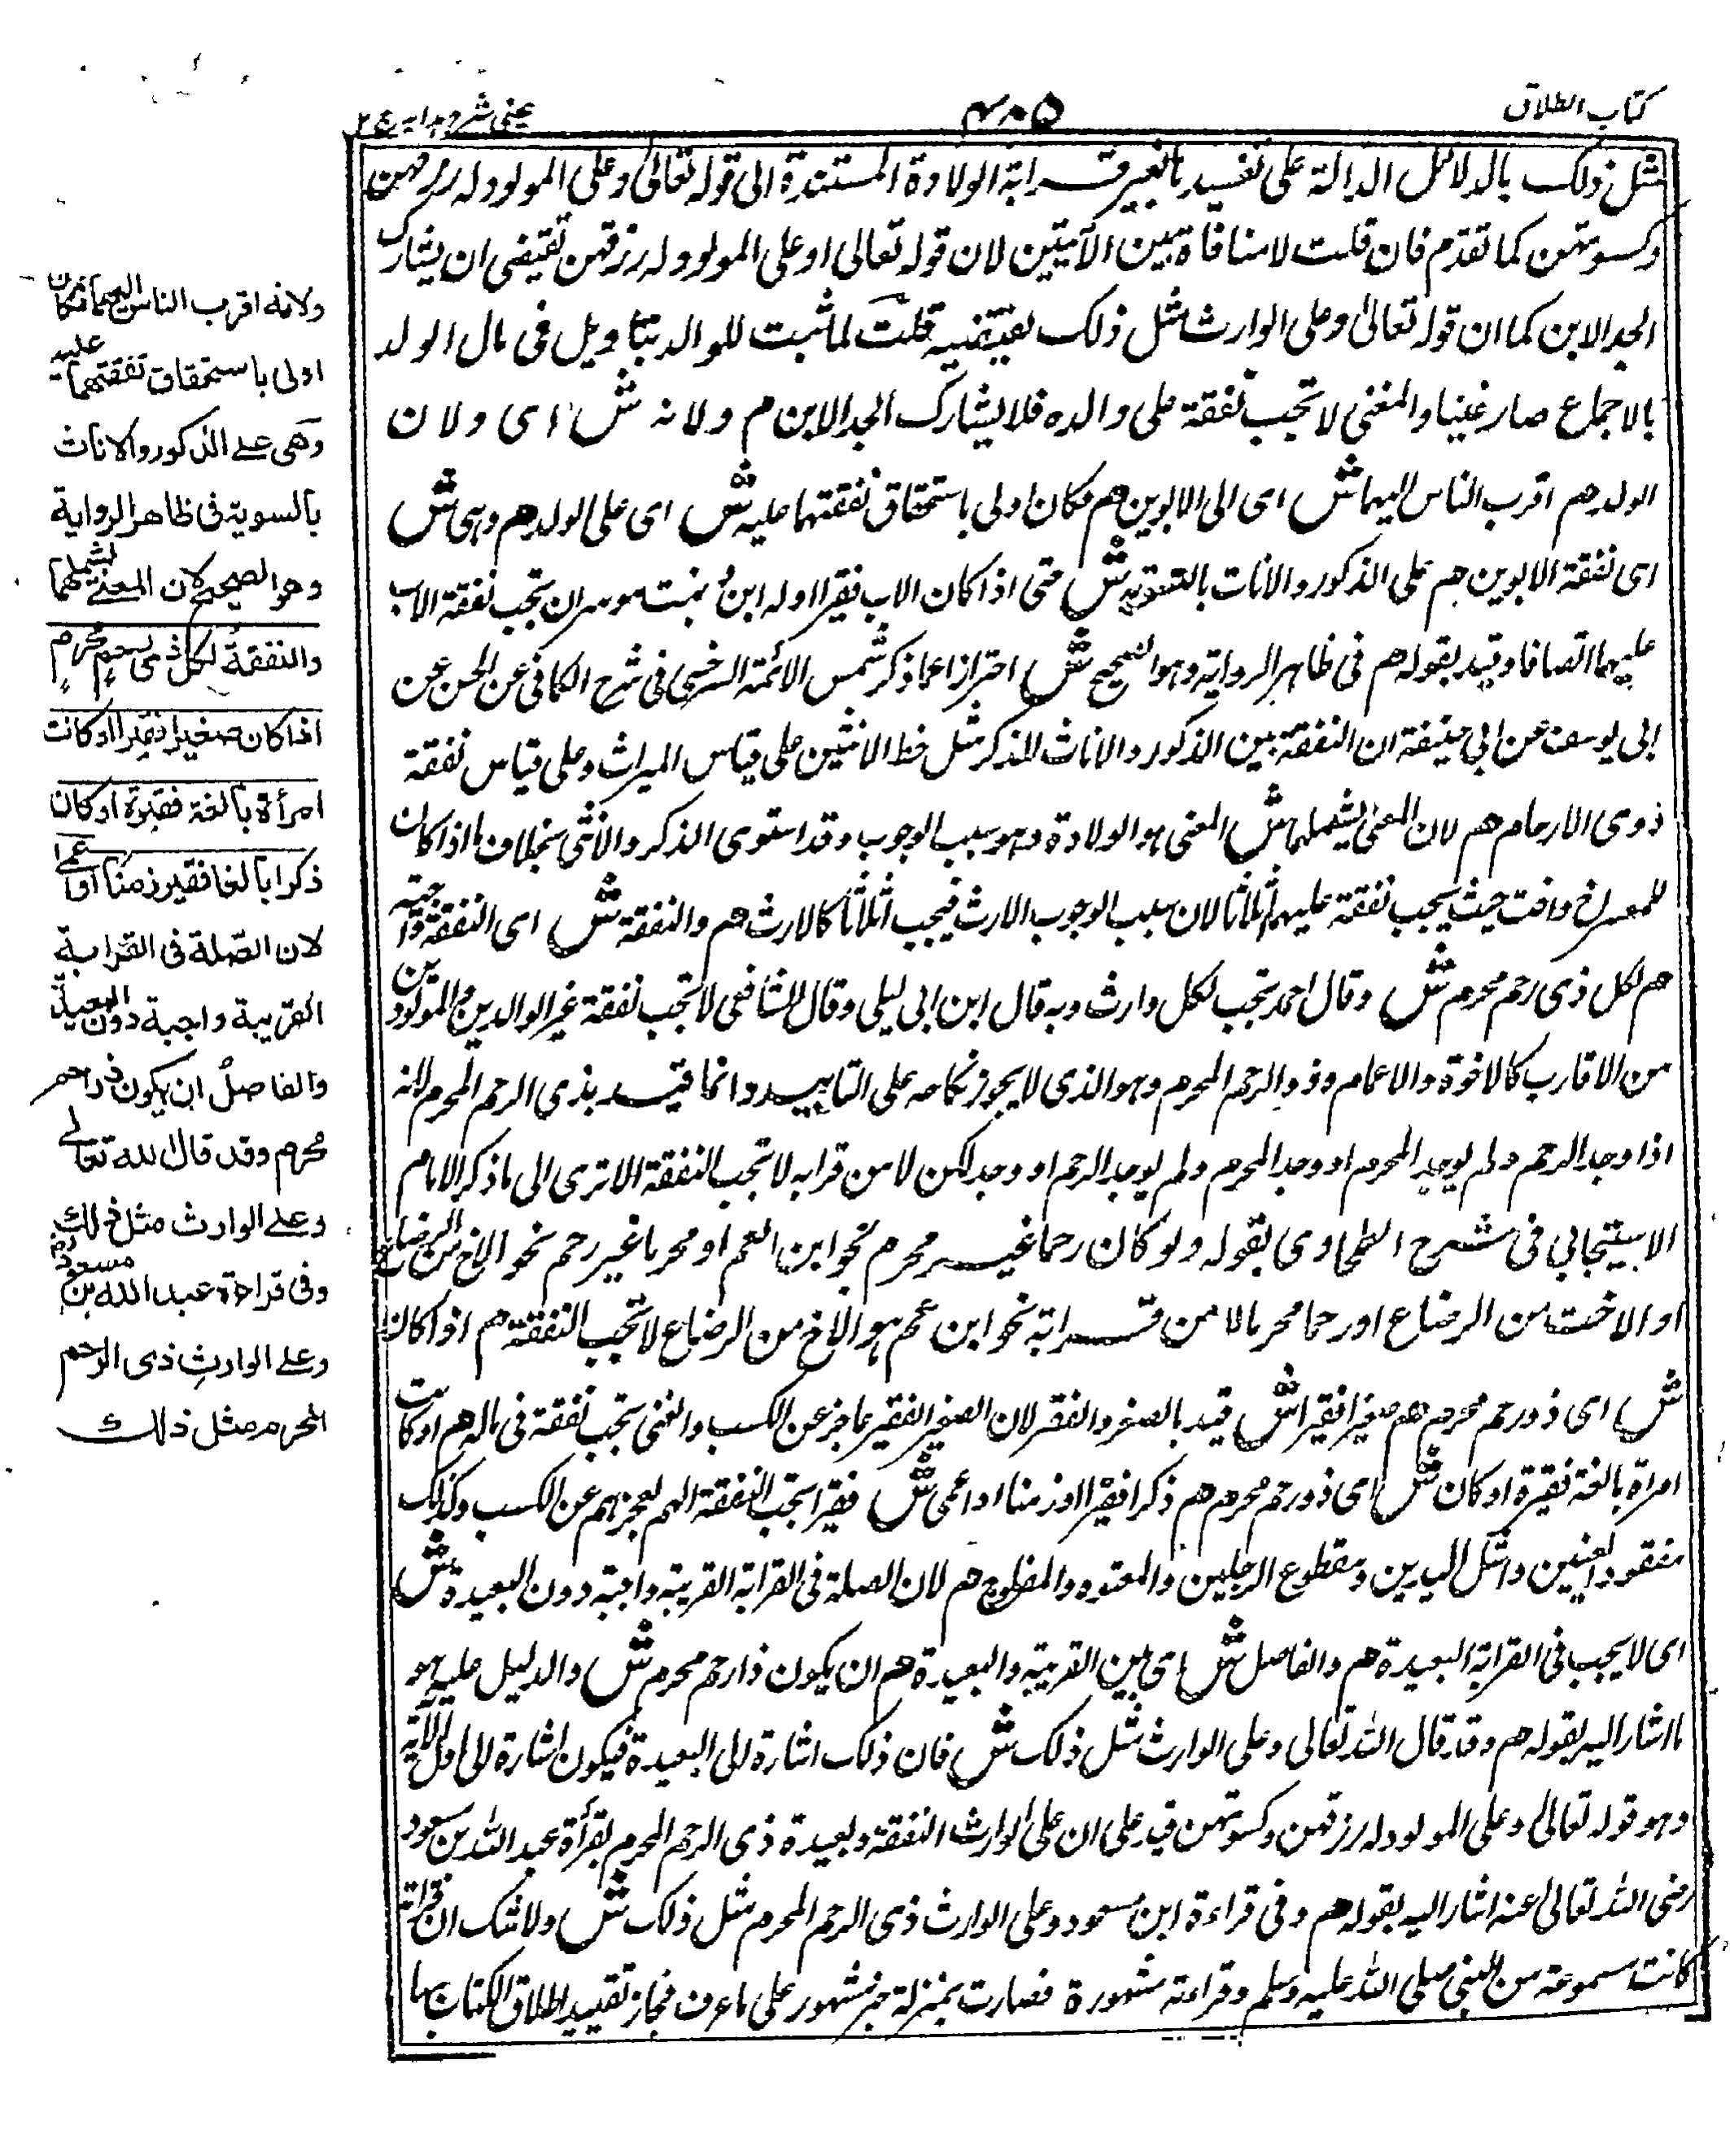 كتاب الطلاق
عینی شرح ہدایہ ج ۲
مثل ذلك بالدلائل الدالة على تفسيد بالغير قرابة الولادة المستندة الى قوله تعالى وعلى المولود له رزقهن
وكسوتهن كما تقدم فان قلت لا منافاة بين الآيتين لان قوله تعالى او على المولود له رزقهن تقتضى ان يشارك
الجد الابن كما ان قوله تعالى وعلى الوارث مثل ذلك يقتضيه قلت لما ثبت للوالد بتاويل فى مال الولد
بالاجماع صار غنيا والغنى لا تجب نفقة على والده فلا يشارك الجد الابن م ولانه ش اى ولان
الولد هم اقرب الناس اليهما ش اى الى الابوين هم فكان اولى باستحقاق نفقتهما عليه ش اى على الولد هم وهى ش
اى نفقة الابوين هم على الذكور والاناث بالتسوية ش حتى اذا كان الاب فقيرا وله ابن وبنت موسران تجب نفقة الاب
عليهما انصافا وقيد بقوله هم فى ظاهر الرواية وهو الصحيح ش احترازا عما ذكر شمس الائمة السرخسى فى شرح الكافى عن الحسن عن
ابى يوسف عن ابى حنيفة ان النفقة بين الذكور والاناث للذكر مثل حظ الانثيين على قياس الميراث وعلى قياس نفقة
ذوى الارحام هم لان المعنى يشملهما ش المعنى هو الولادة وهو سبب الوجوب وقد استوى الذكر والانثى بخلاف ما اذا كان
للمعسر اخ واخت حيث يجب نفقة عليهما اثلاثا لان سبب الوجوب الارث فيجب اثلاثا كالارث هم والنفقة ش اى النفقة واجبة
هم لكل ذى رحم محرم ش وقال احمد تجب لكل وارث وبه قال ابن ابى ليلى وقال الشافعى لا تجب نفقة غير الوالدين والمولودين
من الاقارب كالاخوة والاعمام وذو الرحم المحرم وهو الذى لا يجوز نكاحه على التابيد وانما قيد بذى الرحم المحرم لانه
اذا وجد الرحم ولم يوجد المحرم او وجد المحرم ولم يوجد الرحم او وجد لكن لا من قرابه لا تجب النفقة الا ترى الى ما ذكر الامام
الاسبيجابى فى شرح الطحاوى بقوله ولو كان رحما غير محرم نحو ابن العم او محرما غير رحم نحو الاخ من الرضاع
او الاخت من الرضاع او رحما محرما لا من قرابة نحو ابن عم هو الاخ من الرضاع لا تجب النفقة هم اذا كان
ش اى ذو رحم محرم هم صغيرا فقيرا ش قيد بالصغر والفقر لان الصغير الفقير عاجز عن الكسب والغنى تجب نفقة فى ماله هم او كانت
امراة بالغة فقيرة او كان ش اى ذو رحم محرم هم ذكرا فقيرا او زمنا او اعمى ش فقيرا تجب النفقة الهم لعجزهم عن الكسب وكذلك
مفقود العينين واشل اليدين ومقطوع الرجلين والمعتوه والمفلوج هم لان الصلة فى القرابة القريبة واجبة دون البعيدة ش
اى لا يجب فى القرابة البعيدة هم والفاصل ش اى بين القريبة والبعيدة هم ان يكون ذا رحم محرم ش والدليل عليه هو
ما اشار اليه بقوله هم وقد قال الله تعالى وعلى الوارث مثل ذلك ش فان ذلك اشارة الى البعيدة فيكون اشارة الى اول الآية
وهو قوله تعالى وعلى المولود له رزقهن وكسوتهن فيه على ان على الوارث النفقة وبعيدة ذى الرحم المحرم بقرأة عبد الله بن مسعود
رضى الله تعالى عنه اشار اليه بقوله هم وفى قراءة ابن مسعود وعلى الوارث ذى الرحم المحرم مثل ذلك ش ولا شك ان قراءته
كانت مسموعة من النبى صلى الله عليه وسلم وقراءته مشهورة فصارت بمنزلة خبر مشهور على ما عرف فجاز تقييد اطلاق الكتاب بها
ولانه اقرب الناس اليهما فكان
اولى باستحقاق نفقتهما عليه
وهى على الذكور والاناث
بالسوية فى ظاهر الرواية
وهو الصحيح لان المعنى يشملهما
والنفقة لكل ذى رحم محرم
اذا كان صغيرا فقيرا او كانت
امرأة بالغة فقيرة او كان
ذكرا بالغا فقيرا زمنا او اعمى
لان الصلة فى القرابة
القريبة واجبة دون البعيدة
والفاصل ان يكون ذا رحم
محرم وقد قال الله تعالى
وعلى الوارث مثل ذلك
وفى قراءة عبد الله بن مسعود رض
وعلى الوارث ذى الرحم
المحرم مثل ذلك